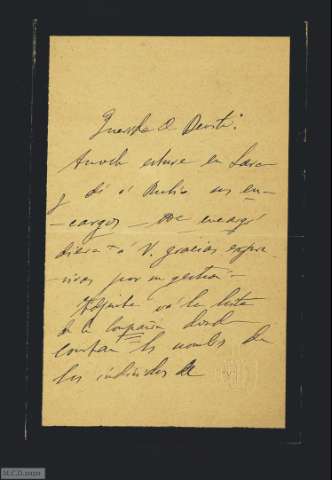 Querido D.
Anoche estuve en Lara
y di á Rubio sus en-
-cargos - Me encargó
diera á V. gracias expre-
-sivas por su gestión -
Adjunta vá la lista
de la compañia donde
constan los nombres de
los individuos de
M.C.D. 2022